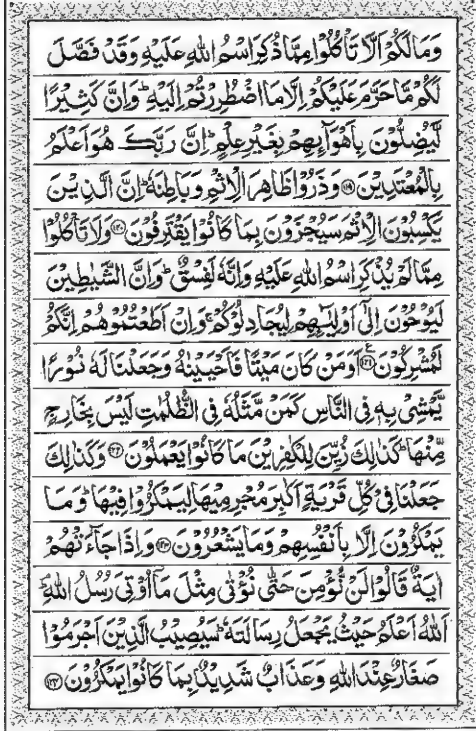 وَمَا لَكُمْ اَلَّا تَاْكُلُوْا مِمَّا ذُكِرَ اسْمُ اللّٰهِ عَلَيْهِ وَقَدْ فَصَّلَ
لَكُمْ مَّا حَرَّمَ عَلَيْكُمْ اِلَّا مَا اضْطُرِرْتُمْ اِلَيْهِ ؕ وَاِنَّ كَثِيْرًا
لَّيُضِلُّوْنَ بِاَهْوَآىِٕهِمْ بِغَيْرِ عِلْمٍ ؕ اِنَّ رَبَّكَ هُوَ اَعْلَمُ
بِالْمُعْتَدِيْنَ ﴿۱۱۹﴾ وَذَرُوْا ظَاهِرَ الْاِثْمِ وَبَاطِنَهٗ ؕ اِنَّ الَّذِيْنَ
يَكْسِبُوْنَ الْاِثْمَ سَيُجْزَوْنَ بِمَا كَانُوْا يَقْتَرِفُوْنَ ﴿۱۲۰﴾ وَلَا تَاْكُلُوْا
مِمَّا لَمْ يُذْكَرِ اسْمُ اللّٰهِ عَلَيْهِ وَاِنَّهٗ لَفِسْقٌ ؕ وَاِنَّ الشَّيٰطِيْنَ
لَيُوْحُوْنَ اِلٰٓى اَوْلِيٰٓـِٕهِمْ لِيُجَادِلُوْكُمْ ۚ وَاِنْ اَطَعْتُمُوْهُمْ اِنَّكُمْ
لَمُشْرِكُوْنَ ﴿۱۲۱﴾ ع اَوَمَنْ كَانَ مَيْتًا فَاَحْيَيْنٰهُ وَجَعَلْنَا لَهٗ نُوْرًا
يَّمْشِيْ بِهٖ فِى النَّاسِ كَمَنْ مَّثَلُهٗ فِى الظُّلُمٰتِ لَيْسَ بِخَارِجٍ
مِّنْهَا ؕ كَذٰلِكَ زُيِّنَ لِلْكٰفِرِيْنَ مَا كَانُوْا يَعْمَلُوْنَ ﴿۱۲۲﴾ وَكَذٰلِكَ
جَعَلْنَا فِيْ كُلِّ قَرْيَةٍ اَكٰبِرَ مُجْرِمِيْهَا لِيَمْكُرُوْا فِيْهَا ؕ وَمَا
يَمْكُرُوْنَ اِلَّا بِاَنْفُسِهِمْ وَمَا يَشْعُرُوْنَ ﴿۱۲۳﴾ وَاِذَا جَآءَتْهُمْ
اٰيَةٌ قَالُوْا لَنْ نُّؤْمِنَ حَتّٰى نُؤْتٰى مِثْلَ مَآ اُوْتِيَ رُسُلُ اللّٰهِ ؔۘ
اَللّٰهُ اَعْلَمُ حَيْثُ يَجْعَلُ رِسَالَتَهٗ ؕ سَيُصِيْبُ الَّذِيْنَ اَجْرَمُوْا
صَغَارٌ عِنْدَ اللّٰهِ وَعَذَابٌ شَدِيْدٌۢ بِمَا كَانُوْا يَمْكُرُوْنَ ﴿۱۲۴﴾